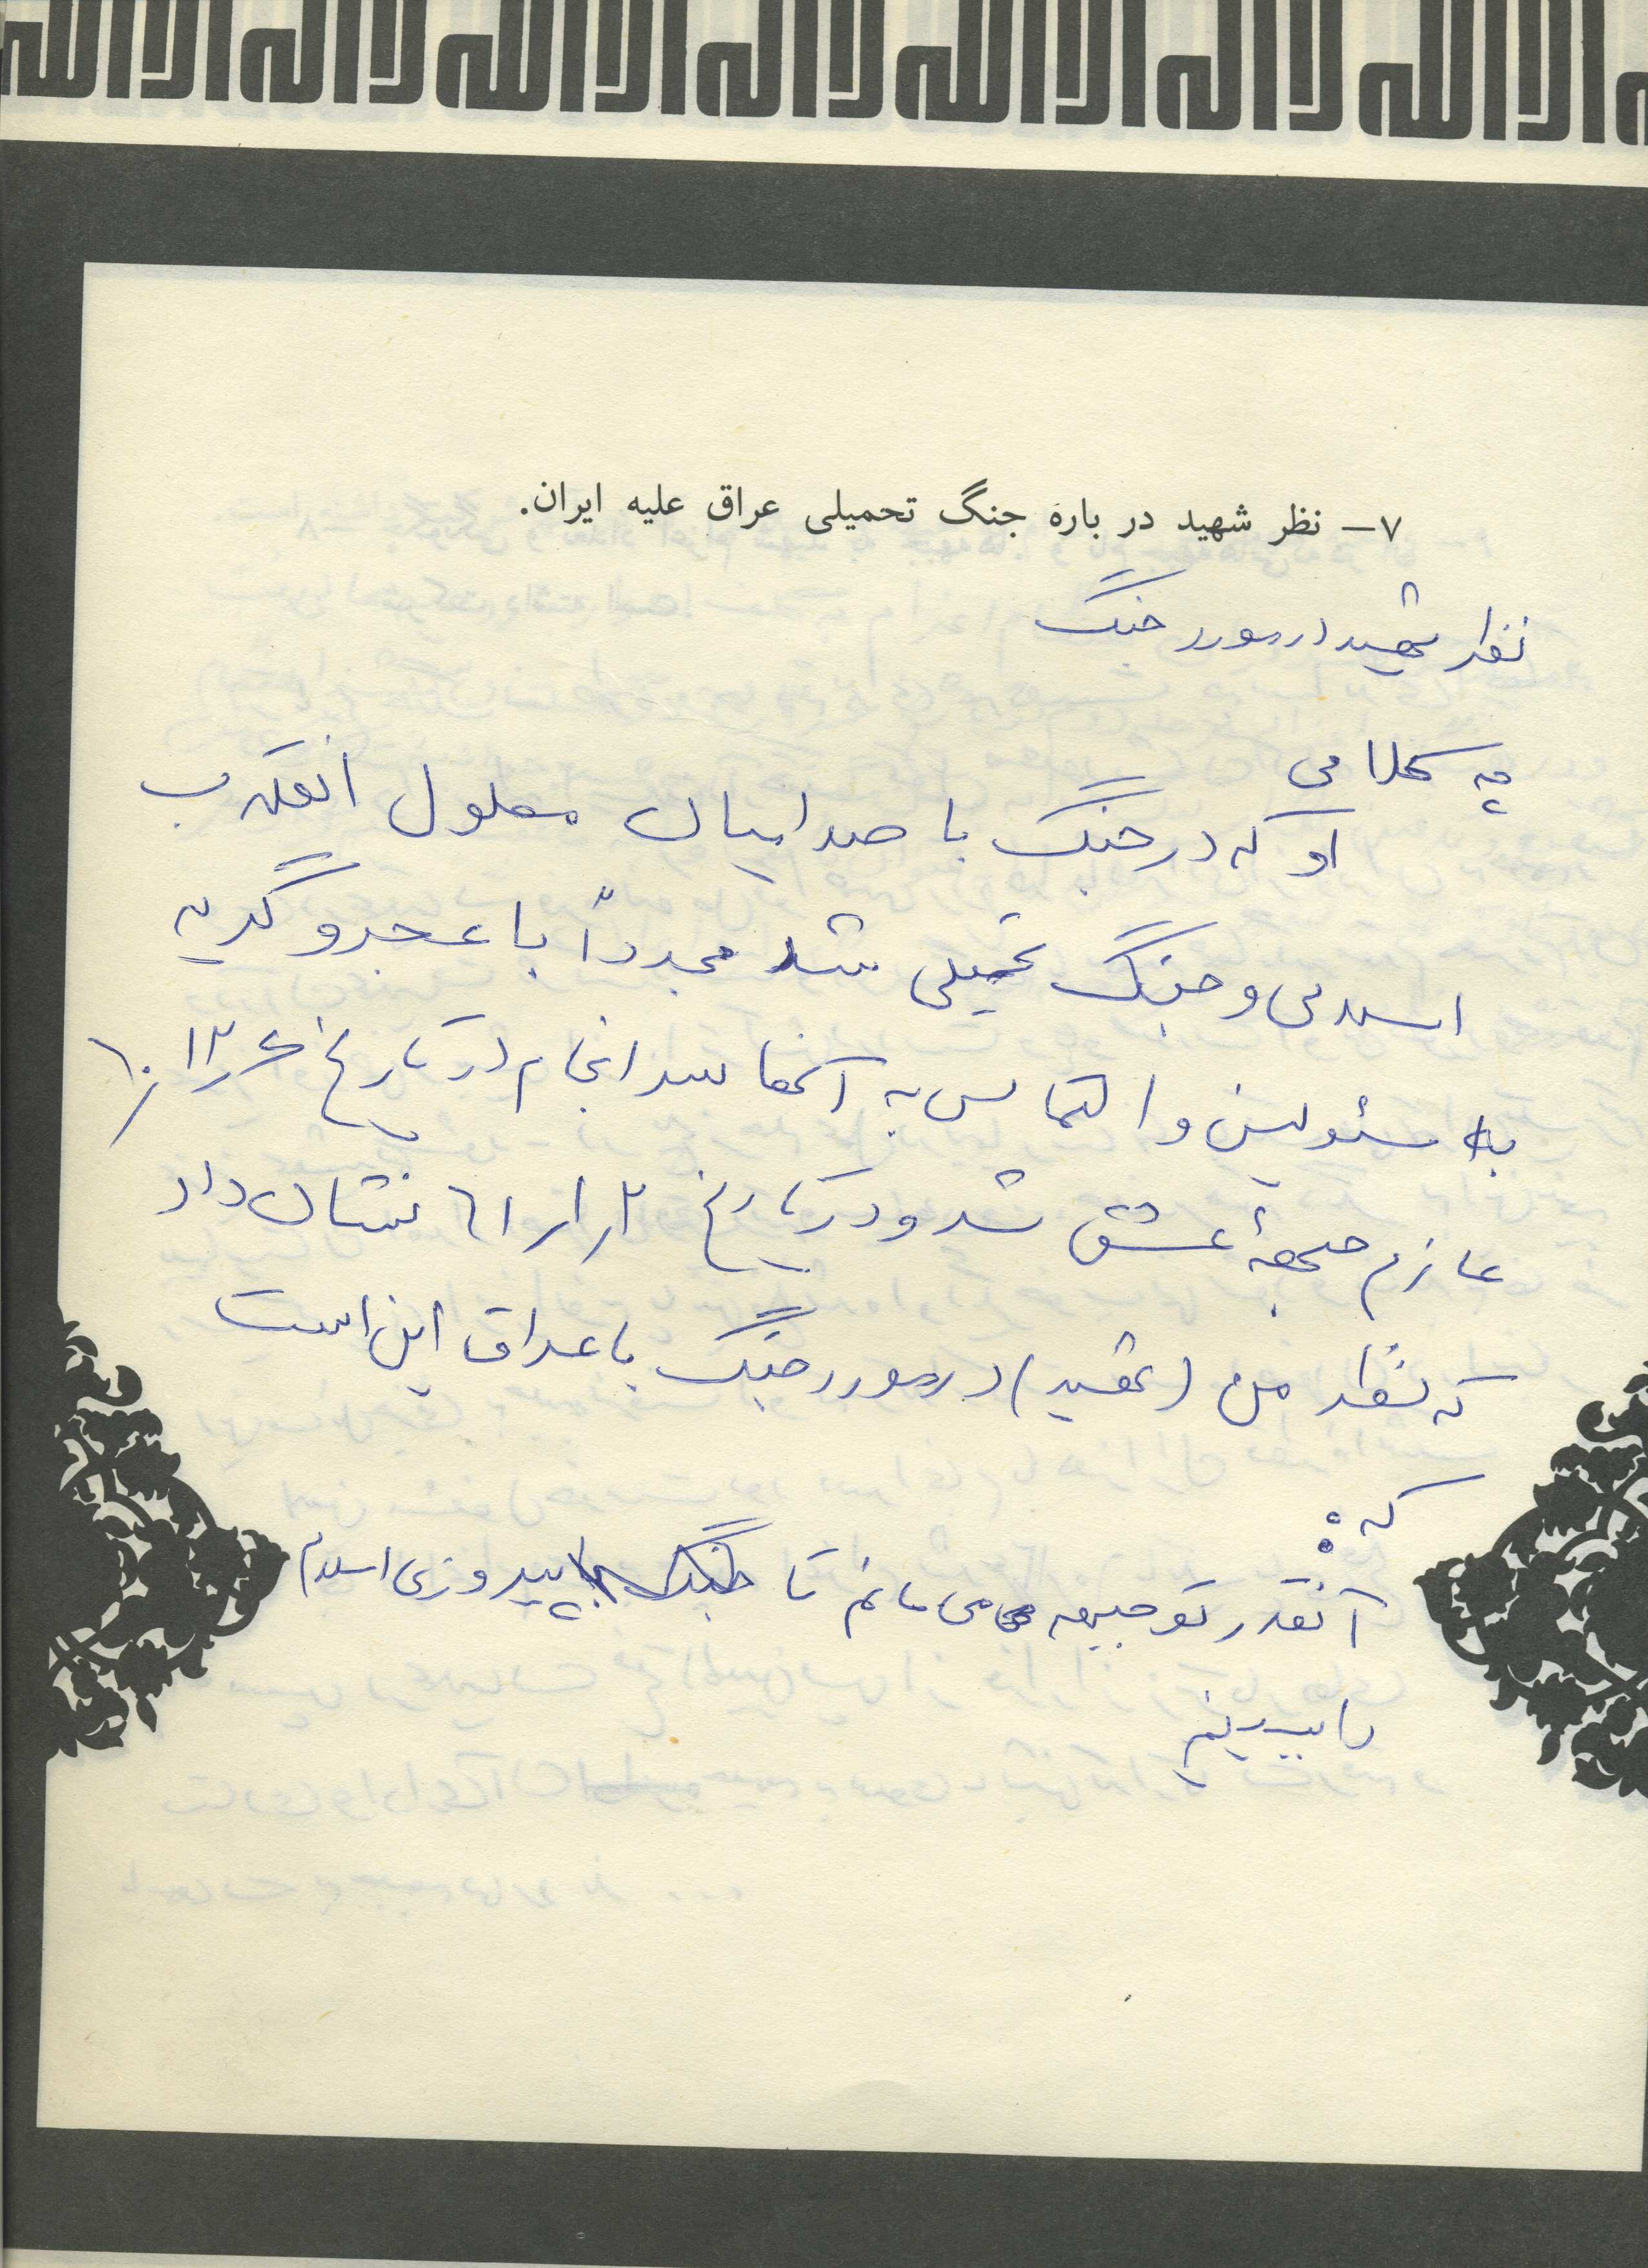 لا اله الا الله لا اله الا الله لا اله الا الله
۷– نظر شهید در باره جنگ تحمیلی عراق علیه ایران.
نظر شهید در مورد جنگ
چه کلامی
او که در جنگ با صدامیان معلول انقلاب
اسلامی و جنگ تحمیلی شد مجدداً با عجز و گریه
به مسئولین و التماس به آنها سرانجام در تاریخ
عازم جبههٔ عشق شد و در تاریخ ۲/۱/۶۱ نشان داد
که نظر من (شهید) در مورد جنگ با عراق این است
که:
آنقدر تو جبهه می مانم تا پیروزی اسلام
را ببینم